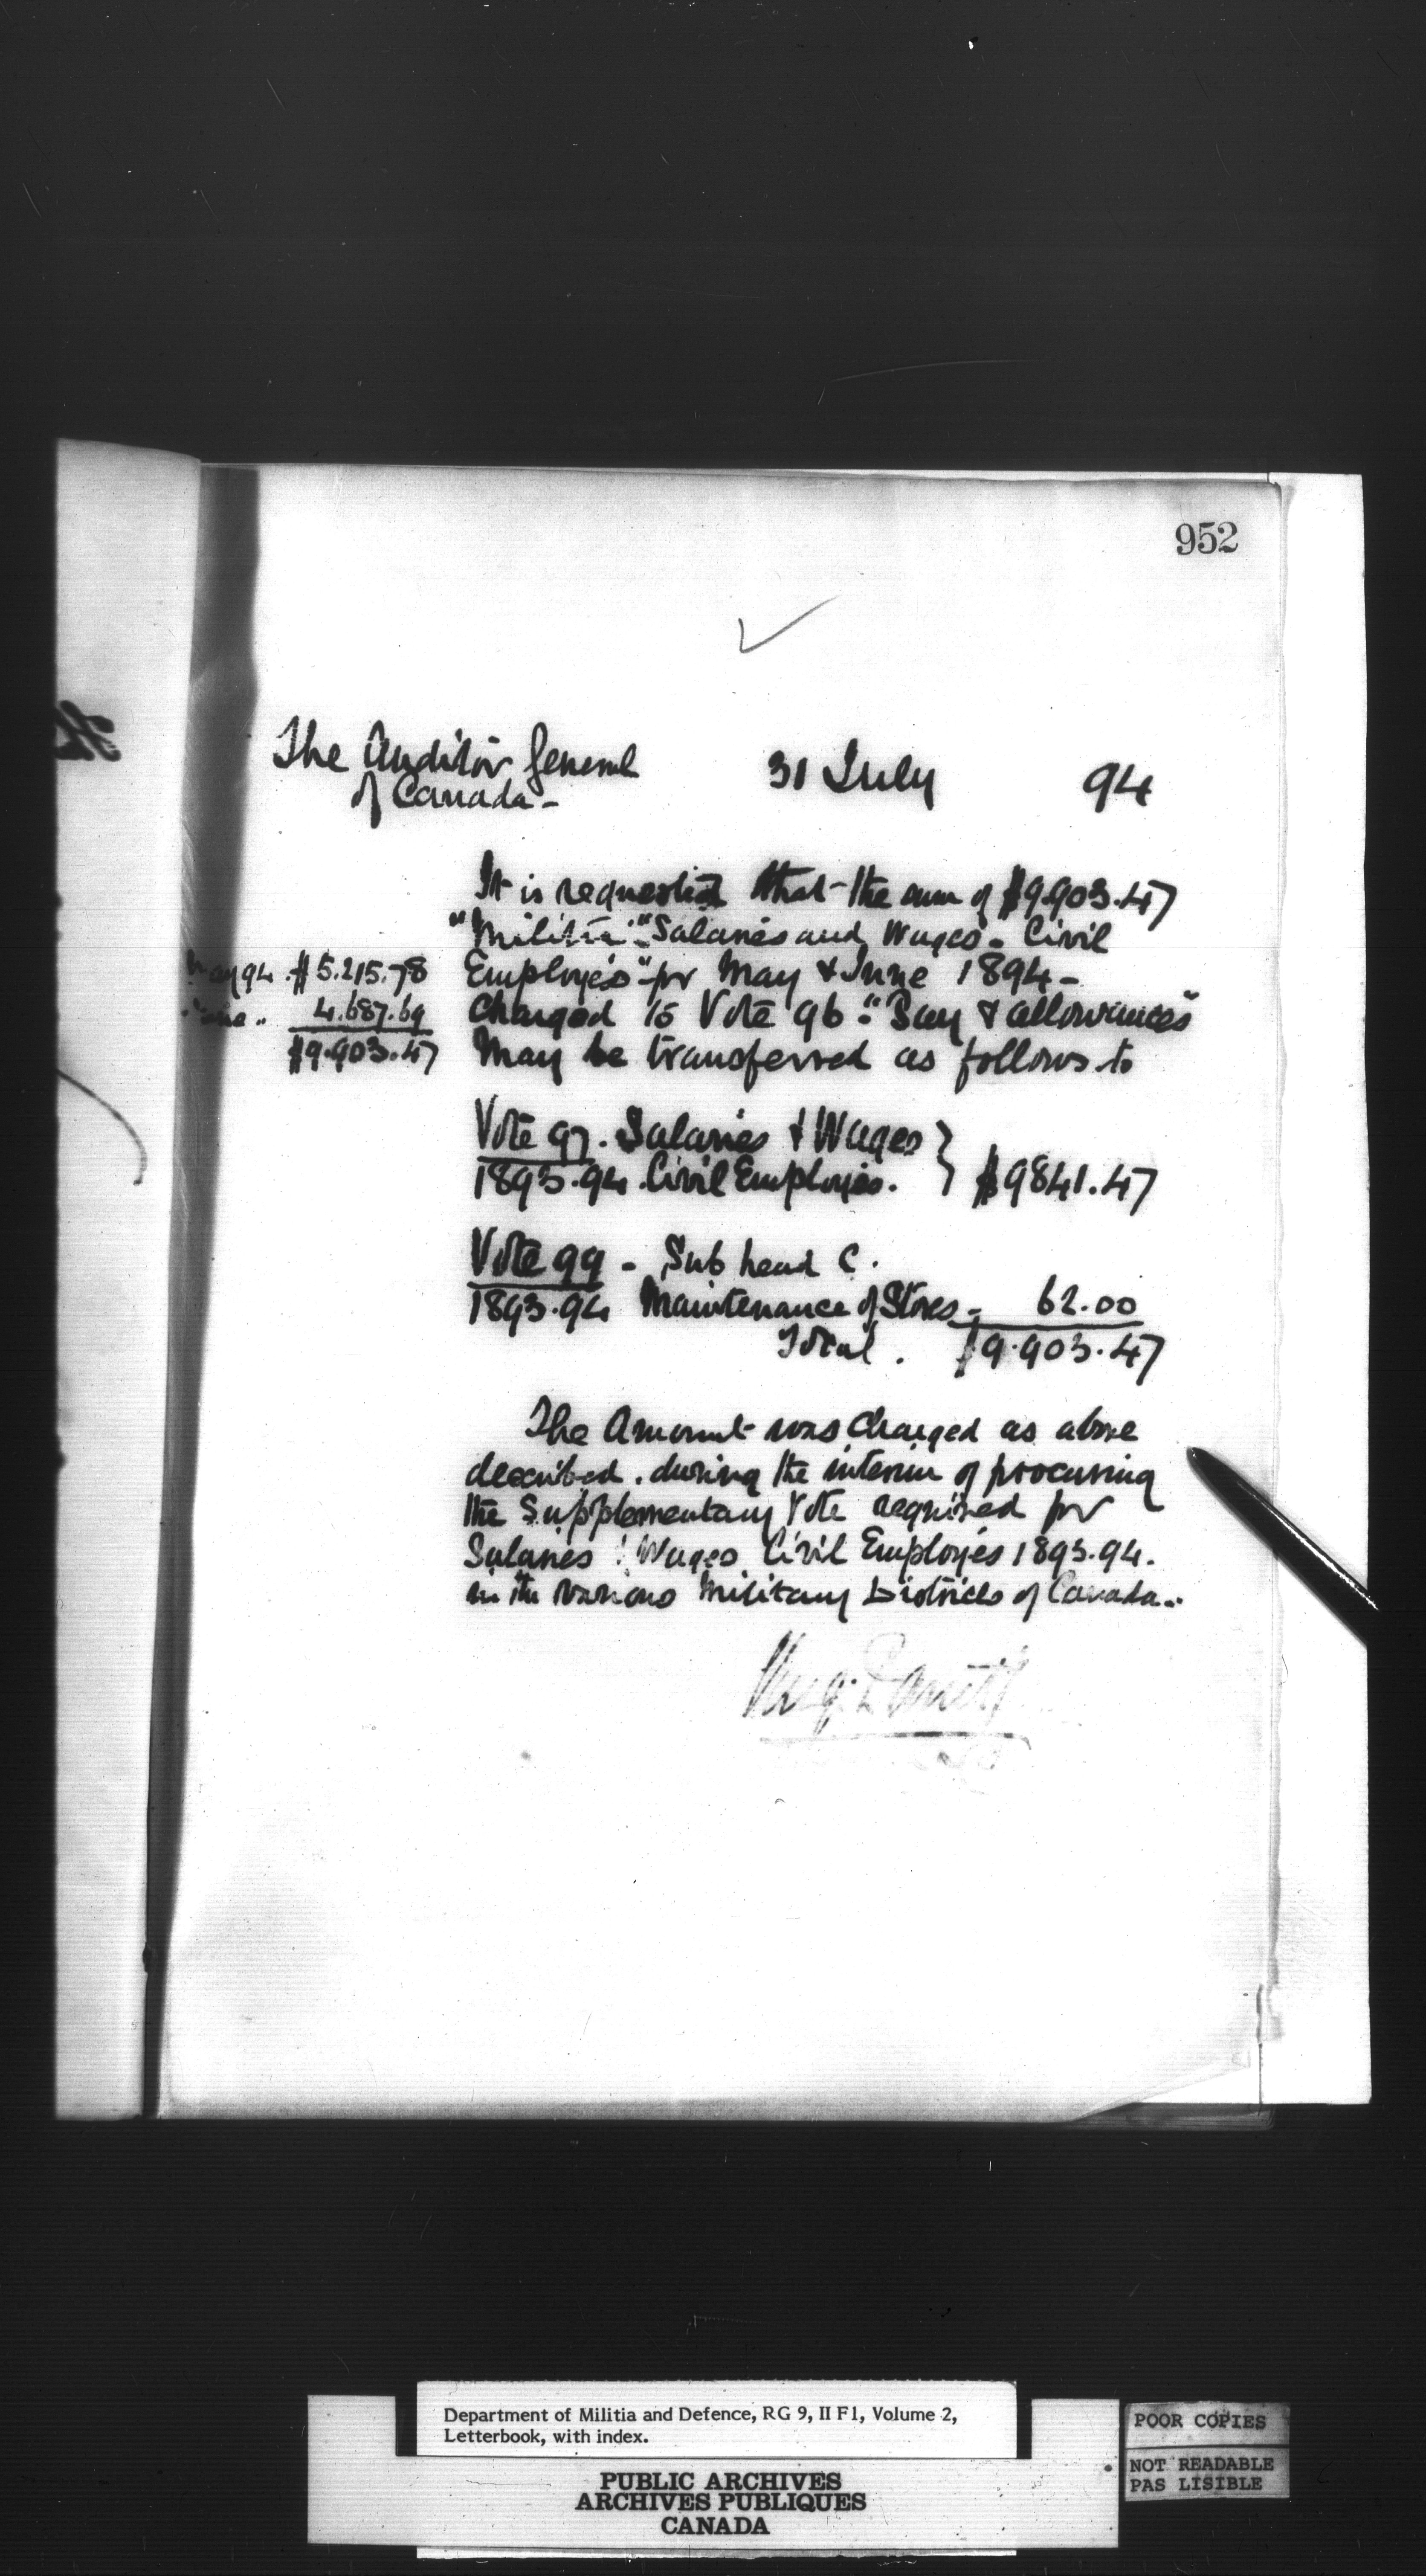 952
The Auditor General
of Canada -
31 July 94
It is requested that the sum of $9.903.47
"Militia" "Salaries and Wages - Civil
Employés" for May & June 1894 -
Charged to Vote 96 - "Pay & allowances"
May be transferred as follows to
May 94 . $5.215.78
4.687.69
$9.903.47
Vote 97 . Salaries & Wages }
1893.94 . Civil Employés . } $9841.47
Vote 99 - Sub head C .
1893.94 Maintenance of Stores - 62.00
Total . $9.903.47
The Amount was Charged as above
described . during the interim of procuring
the Supplementary Vote required for
Salaries & Wages Civil Employés 1893.94 .
in the various Military Districts of Canada ..
Department of Militia and Defence, RG 9, II F1, Volume 2,
Letterbook, with index.
PUBLIC ARCHIVES
ARCHIVES PUBLIQUES
CANADA
POOR COPIES
NOT READABLE
PAS LISIBLE